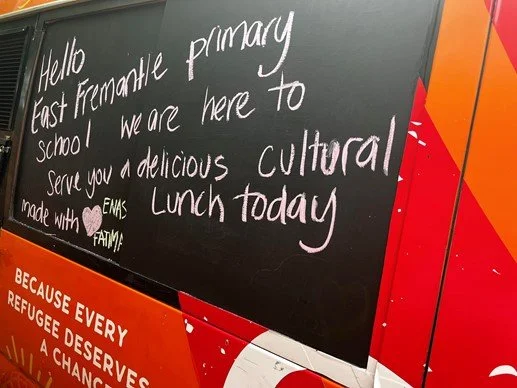 Hello
East Fremantle primary
school we are here to
Serve you a delicious cultural
made with ENAS Lunch today
FATIMA
BECAUSE EVERY
REFUGEE DESERVES
A CHANCE